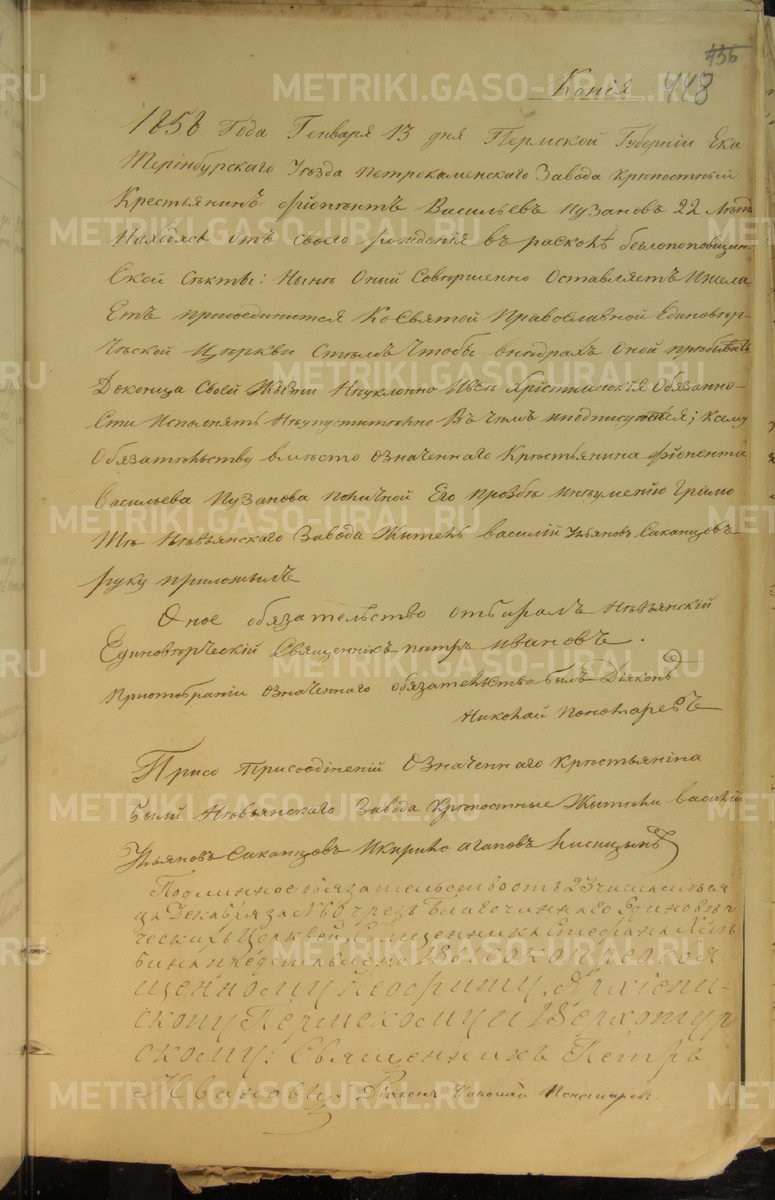 456
Копія 448
1858 Года Генваря 13 дня Пермской Губерніи Ека
терінбурскаго Уезда Петрокаменскаго Завода крепостный
Крестьянинъ Васильевъ Пузановъ 22 летъ
Находясь отъ своего рожденія въ расколе беглопоповщин-
ской секты: Ныне Оный Совершенно Оставляетъ Ижела
Етъ присоединится Ко Святой Православной Единовер-
ческой Церкви Стемъ Чтобы внедрахъ Оной пребывать
Доконца Своей Жызни Неуклонно Ивсе Христианскія Обязанно-
сти Исполнять Неупустительно Вчемъ иподписуются; Ксему
Обязательству вместо означеннаго Крестьянина
Васильева Пузанова поличной Его прозбе инеумению Грамо
те Невьянскаго Завода Житель Василій Ульяновъ Саканцовъ
руку приложилъ
Оное обязательство отбиралъ Невьянскій
Единоверческій Священникъ петръ ивановъ.
Приотобраніи означеннаго обязательства былъ Дьяконъ
Николай Пономаревъ
При Присоединеній Означеннаго Крестьяніна
были Невьянскаго Завода Крепостные Жители Василій
Ульяновъ Саканцовъ Икирило агаповъ Лисицынъ
Подлинное обязательство отъ 23 числа месяца
Декабря за № 60 чрезъ Благочиннаго Единовер
ческихъ Церквей Священника Стефана
представлено Высокопреосвя
щенному Неофиту, Архіепи-
скопу Пермскому и Верхотур
скому: Священникъ Петръ
Ивановъ. Діаконъ Николай Пономаревъ.
METRIKI.GASO-URAL.RU